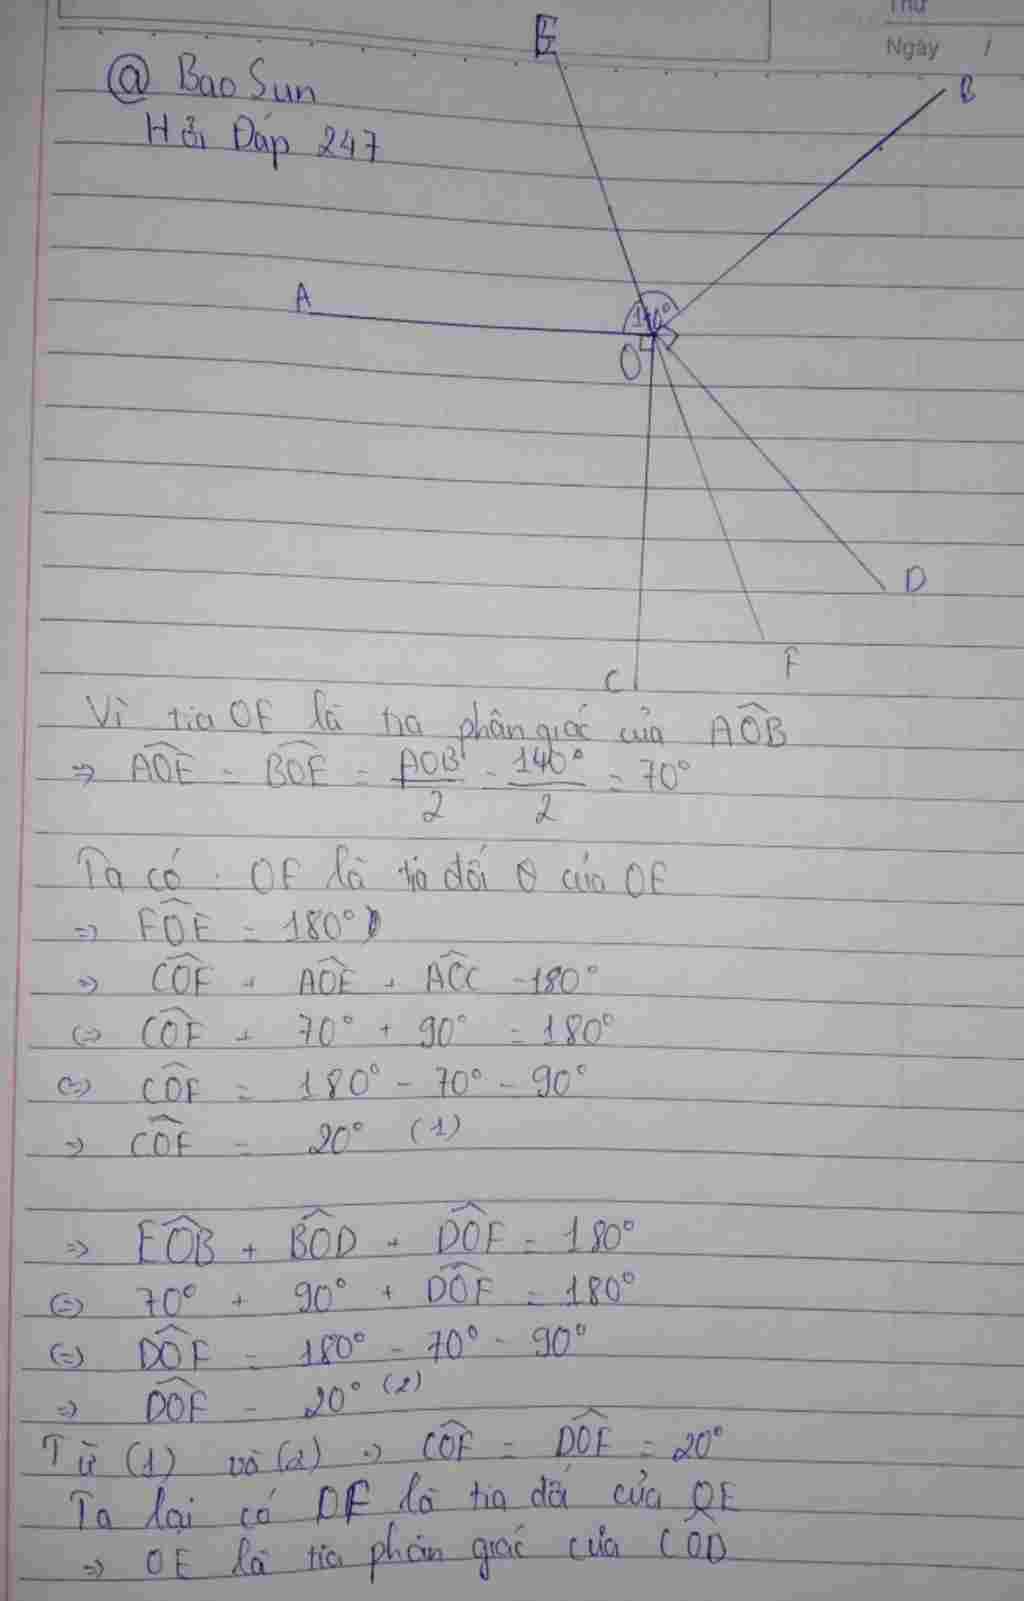 Thứ
Ngày /
@ Bao Sun
Hỏi Đáp 247
E
B
A
140°
O
D
F
C
Vì tia OE là tia phân giác của AÔB
=> AÔE = BÔE = AOB/2 = 140°/2 = 70°
Ta có : OF là tia đối của OE
=> FÔE = 180°
=> CÔF + AÔE + AÔC = 180°
(=) CÔF + 70° + 90° = 180°
(=) CÔF = 180° - 70° - 90°
=> CÔF = 20° (1)
=> EÔB + BÔD + DÔF = 180°
(=) 70° + 90° + DÔF = 180°
(=) DÔF = 180° - 70° - 90°
=> DÔF = 20° (2)
Từ (1) và (2) => CÔF = DÔF = 20°
Ta lại có OF là tia đối của OE
=> OE là tia phân giác của CÔD